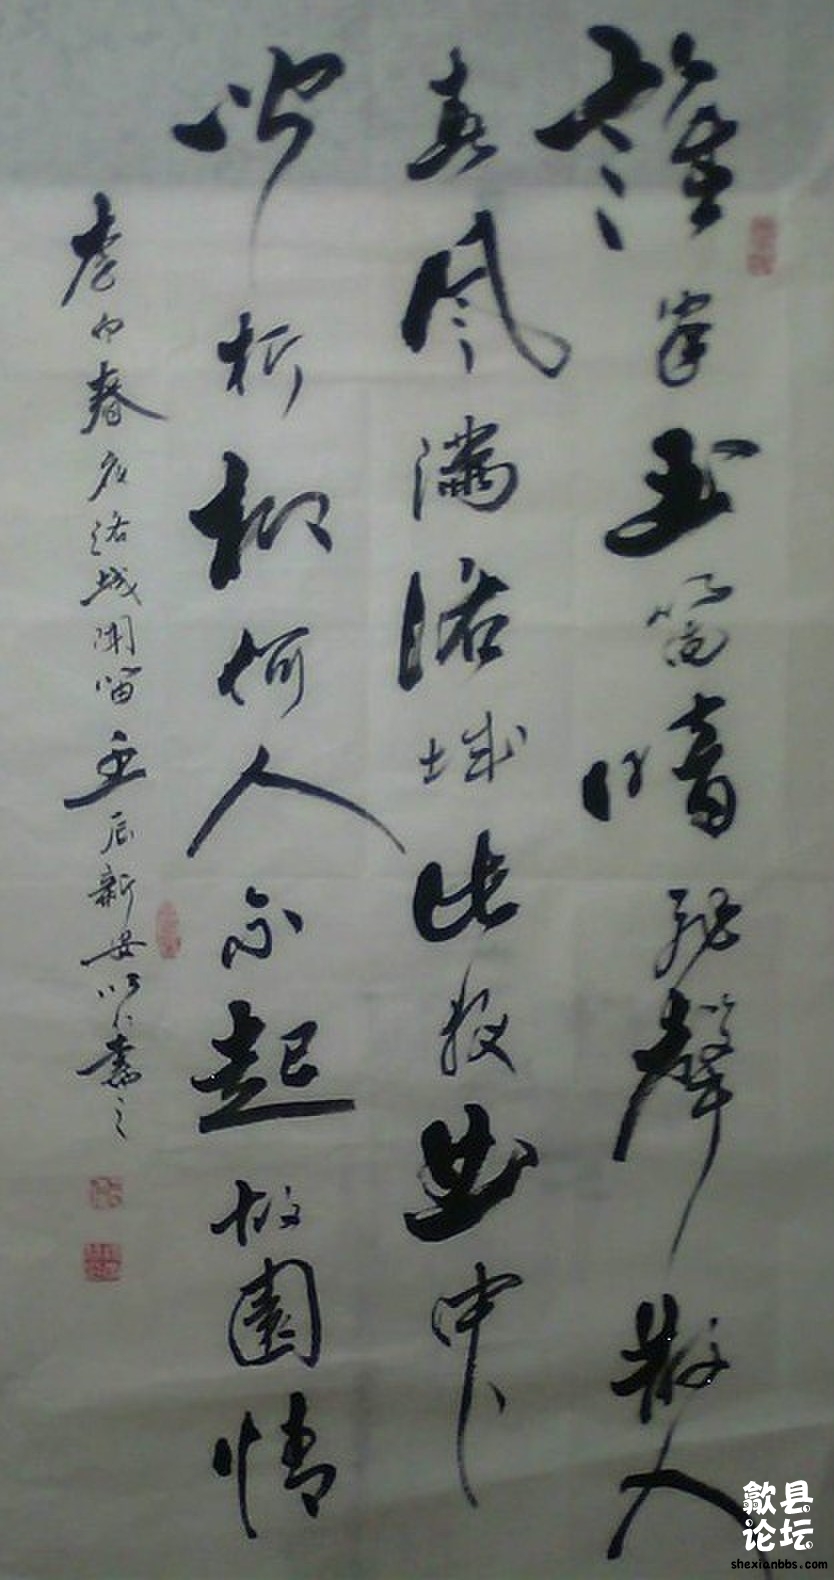 誰家玉笛暗飛聲散入
春風滿洛城此夜曲中
聞折柳何人不起故園情
李白春夜洛城聞笛 壬辰新安書之
歙县
论坛
shexianbbs.com